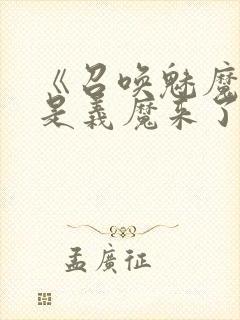 《召唤魅魔
是義魔来了
孟廣征